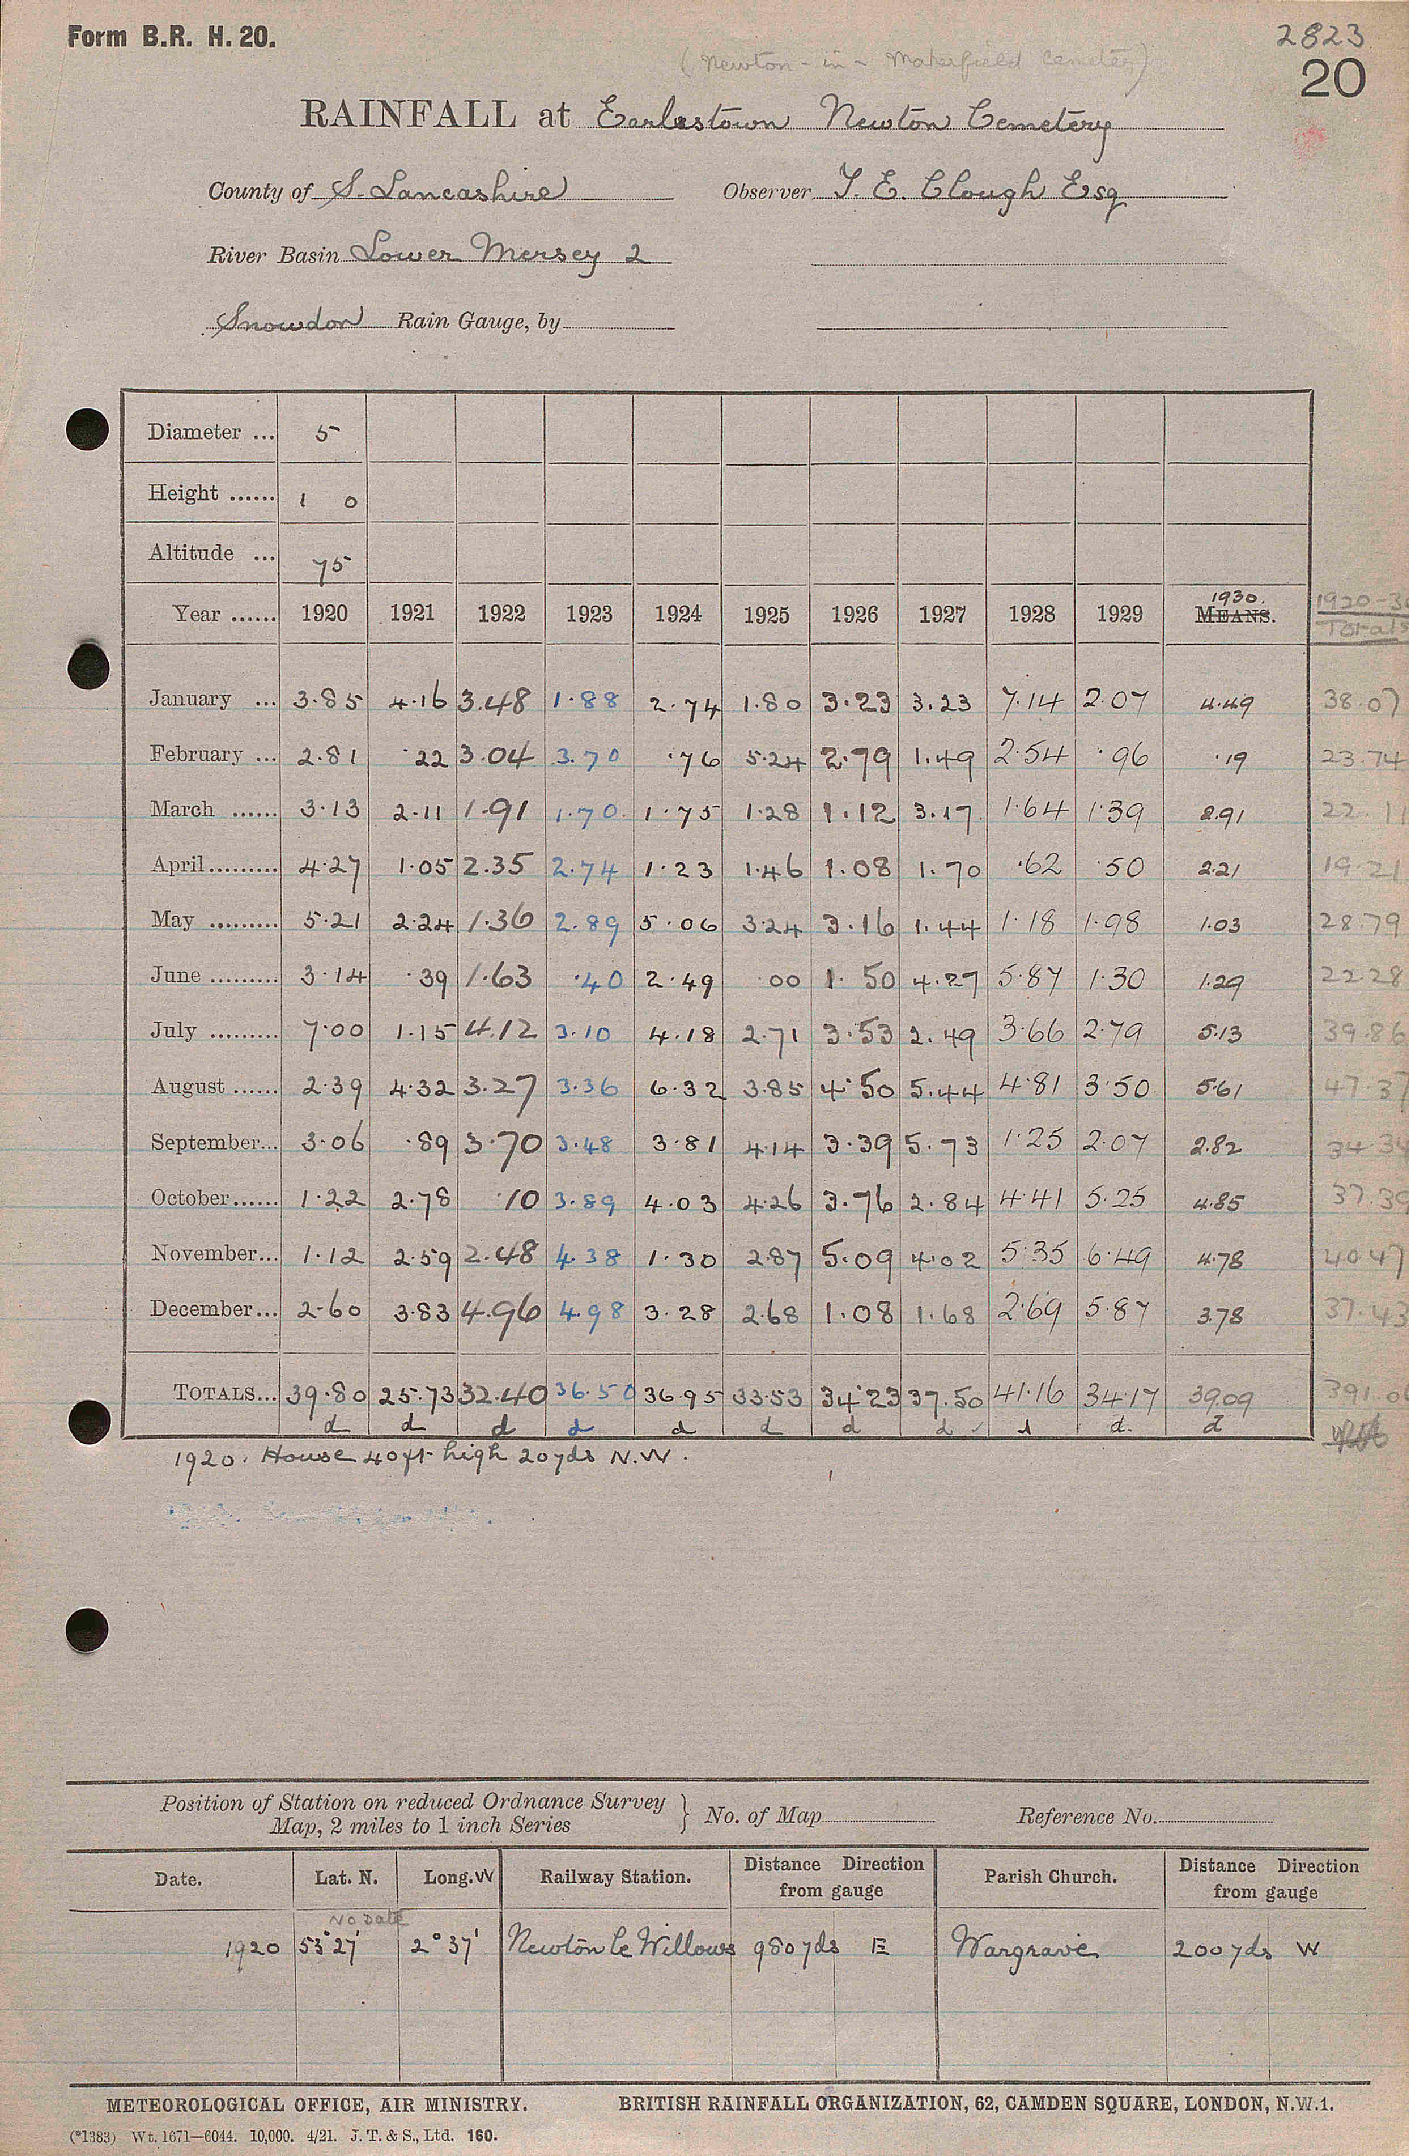 Form B.R. H. 20.
2823
(Newton-in-Makerfield Cemetery)
20
RAINFALL at Earlestown Newton Cemetery
County of S. Lancashire Observer T. E. Clough Esq
River Basin Lower Mersey 2
Snowdon Rain Gauge, by
Diameter ... 5
Height ...... 1 0
Altitude ... 75
Year ...... 1920 1921 1922 1923 1924 1925 1926 1927 1928 1929 1930. MEANS. 1920-30 Totals
January ... 3.85 4.16 3.48 1.88 2.74 1.80 3.23 3.23 7.14 2.07 4.49 38.07
February ... 2.81 .22 3.04 3.70 .76 5.24 2.79 1.49 2.54 .96 .19 23.74
March ...... 3.13 2.11 1.91 1.70 1.75 1.28 1.12 3.17 1.64 1.39 2.91 22.11
April......... 4.27 1.05 2.35 2.74 1.23 1.46 1.08 1.70 .62 .50 2.21 19.21
May ......... 5.21 2.24 1.36 2.89 5.06 3.24 3.16 1.44 1.18 1.98 1.03 28.79
June ......... 3.14 .39 1.63 .40 2.49 .00 1.50 4.27 5.87 1.30 1.29 22.28
July ......... 7.00 1.15 4.12 3.10 4.18 2.71 3.53 2.49 3.66 2.79 5.13 39.86
August ...... 2.39 4.32 3.27 3.36 6.32 3.85 4.50 5.44 4.81 3.50 5.61 47.37
September... 3.06 .89 3.70 3.48 3.81 4.14 3.39 5.73 1.25 2.07 2.82 34.34
October...... 1.22 2.78 .10 3.89 4.03 4.26 3.76 2.84 4.41 5.25 4.85 37.39
November... 1.12 2.59 2.48 4.38 1.30 2.87 5.09 4.02 5.35 6.49 4.78 40.47
December... 2.60 3.83 4.96 4.98 3.28 2.68 1.08 1.68 2.69 5.87 3.78 37.43
TOTALS... 39.80 25.73 32.40 36.50 36.95 33.53 34.23 37.50 41.16 34.17 39.09 391.06
d d d d d d d d d d. d
1920. House 40ft high 20yds N.W.
Position of Station on reduced Ordnance Survey Map, 2 miles to 1 inch Series } No. of Map Reference No.
Date. Lat. N. Long. W Railway Station. Distance Direction from gauge Parish Church. Distance Direction from gauge
No Date
1920 53°27' 2°37' Newton le Willows 980 yds E Wargrave 200 yds W
METEOROLOGICAL OFFICE, AIR MINISTRY. BRITISH RAINFALL ORGANIZATION, 62, CAMDEN SQUARE, LONDON, N.W.1.
(*1383) Wt. 1671—6044. 10,000. 4/21. J. T. & S., Ltd. 160.